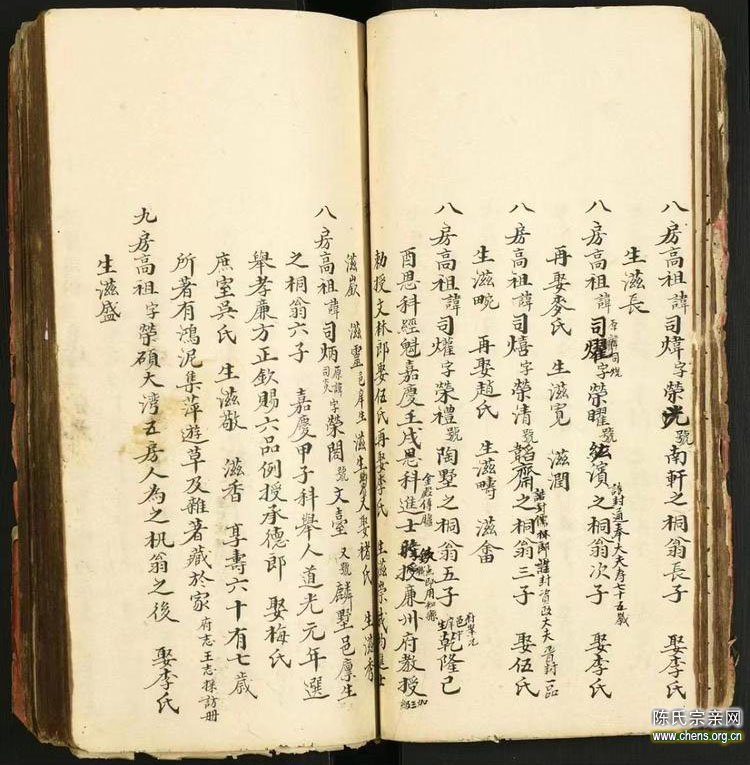 八房高祖諱司煒字榮光號南軒之桐翁長子　娶李氏
生滋長
八房高祖諱司耀字榮曜號鉉濱之桐翁次子　娶李氏
誥封通奉大夫壽七十五歲
再娶麥氏　生滋寬　滋潤
八房高祖諱司熺字榮清號韜齋之桐翁三子　娶伍氏
生滋畹　再娶趙氏　生滋疇　滋畬
八房高祖諱司爟字榮禮號陶墅之桐翁五子　乾隆己
酉恩科經魁嘉慶壬戌恩科進士　授廉州府教授
金殿傳臚
勅授文林郎娶伍氏再娶李氏　生滋榮
滋嶔　滋靈邑庠生　娶楊氏　生滋秀
八房高祖諱司炳原諱司炎字榮閣號文臺又號麟墅邑廩生
之桐翁六子　嘉慶甲子科舉人道光元年選
舉孝廉方正欽賜六品例授承德郎　娶梅氏
庶室吳氏　生滋敬　滋香　享壽六十有七歲
所著有鴻泥集萍遊草及雜著藏於家府志王志採訪冊
九房高祖字榮碩大灣五房人為之机翁之後　娶李氏
生滋盛
陈氏宗亲网
www.chens.org.cn